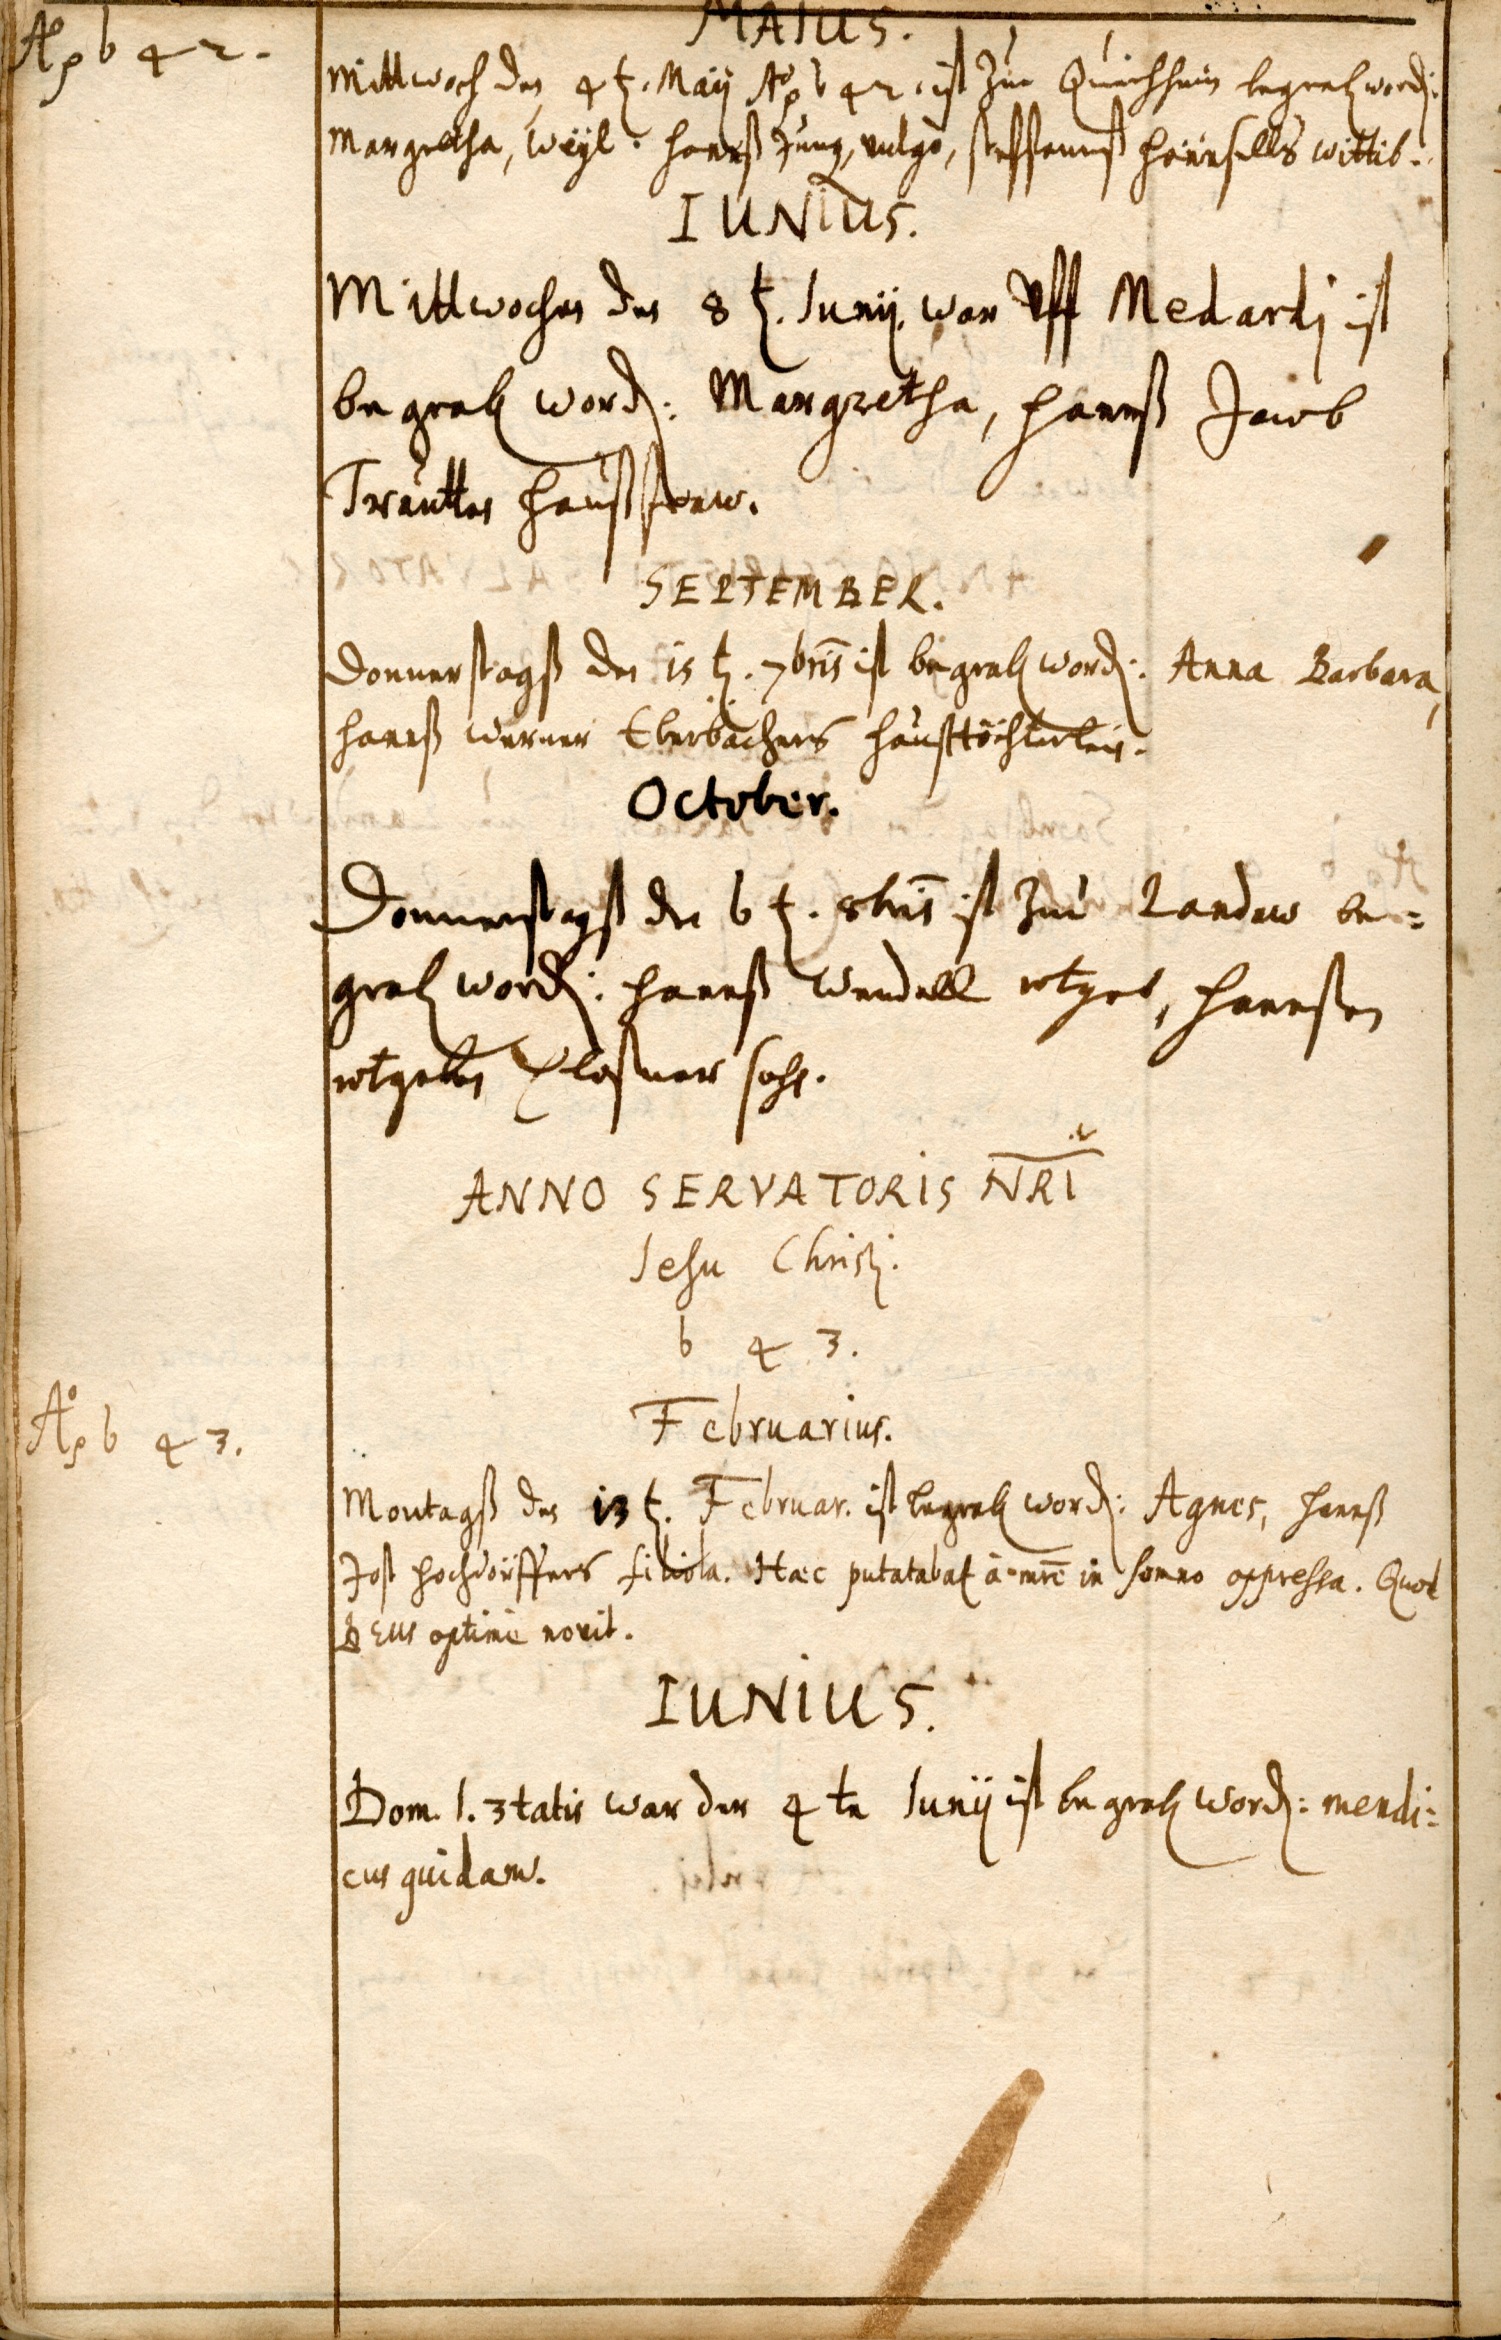 MAIUS.
Aō b 42.
Mittwoch den 4t. Maij Aō b42. ist zue Queichheim begrab word:
Margretha, Weyl. hannß Jung, vulgò, steffanuß Hännsells wittib.
IUNIUS.
Mittwochen den 8t. Iunij. war Uff Medardj ist
begrab word: Margretha, hannß Jacob
Trautten haußfraw.
SEPTEMBER.
Donnerstagß den 15t. 7bris ist begrab word: Anna Barbara,
hannß Werner Eberbachers haußtöchterlein.
October.
Donnerstagß den 6t. 8bris ist zue Landaw be=
grab word: hannß Wendell , hannßen
sohn.
ANNO SERVATORIS NRI
Iesu Christj.
b 4 3.
Februarius.
Aō b 43.
Montagß den 13t. Februar. ist begrab word: Agnes, hannß
Jost Hochdörffers filiola. Haec putatabat à mre in somno oppressa. Quod
DEUS optimè novit.
IUNIUS.
Dom. 1. 3tatis war der 4te Iunij ist begrab word: mendi=
cus quidam.